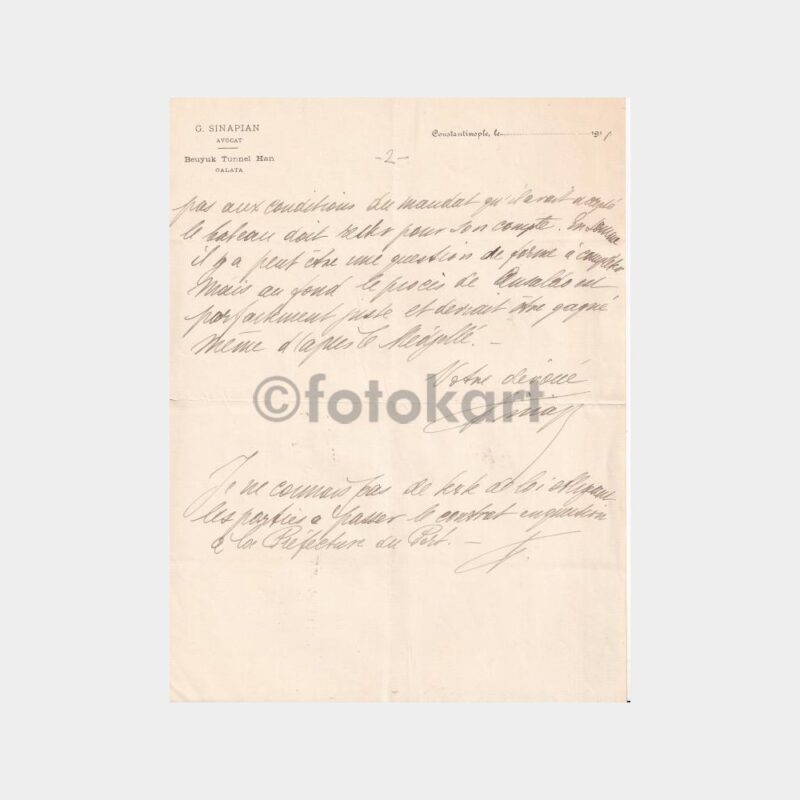 G. SINAPIAN
AVOCAT
Beuyuk Tunnel Han
GALATA
Constantinople, le 191
- 2 -
pas aux conditions du mandat qu'il avait accepté
le bateau doit rester pour son compte. En somme
il y a peut être une question de forme à compléter
Mais au fond le procès de est
parfaitement juste et devrait être gagné
même d'après le Medjellé. —
Votre dévoué
©fotokart
Je ne connais pas de texte de loi obligeant
les parties à passer le contrat en question
à la Préfecture du Port. —